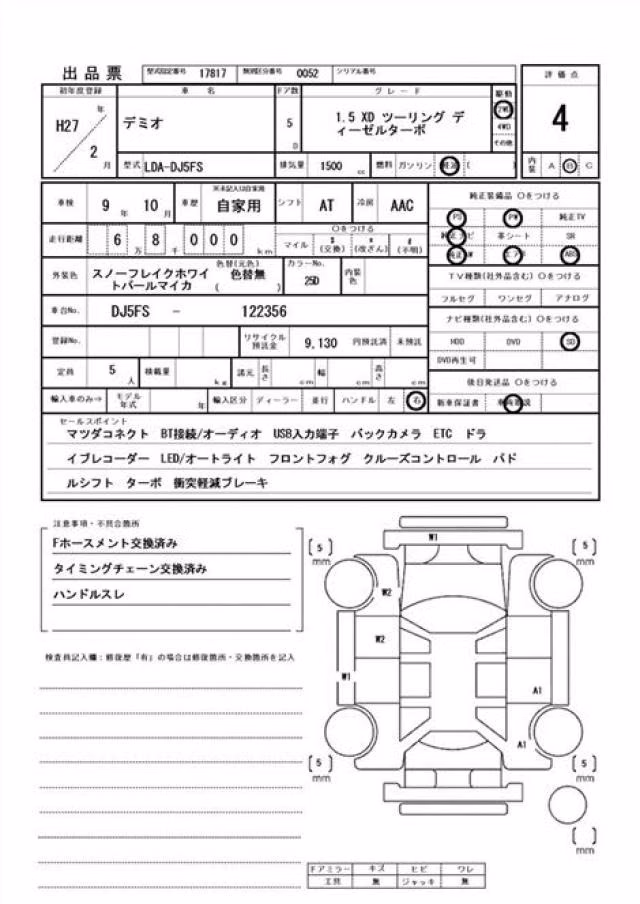 出品票 型式指定番号 17817 類別区分番号 0052 シリアル番号
初年度登録 車 名 ドア数 グレード 駆動 評価点
H27 年 2 月 デミオ 5 D 1.5 XD ツーリング デ
ィーゼルターボ 2WD 4WD その他 4
型式 LDA-DJ5FS 排気量 1500 cc 燃料 ガソリン 軽油 ( ) 内装 A B C
車検 9 年 10 月 車歴 ※未記入は自家用 自家用 シフト AT 冷房 AAC
純正装備品 ○をつける
走行距離 6 万 8 千 0 0 0 km ○をつける マイル $ (交換) * (改ざん) # (不明)
PS PW 純正TV
純正ナビ 革シート SR
純正AW エアB ABS
外装色 スノーフレイクホワイ
トパールマイカ 色替(元色) 色替無 ( ) カラーNo. 25D 内装色
TV種類(社外品含む) ○をつける
フルセグ ワンセグ アナログ
車台No. DJ5FS - 122356
ナビ種類(社外品含む) ○をつける
登録No. リサイクル預託金 9,130 円預託済 未預託
HDD DVD SD
DVD再生可
定員 5 人 積載量 kg 諸元 長さ cm 幅 cm 高さ cm
後日発送品 ○をつける
輸入車のみ⇒ モデル年式 年 輸入区分 ディーラー 並行 ハンドル 左 右
新車保証書
セールスポイント
マツダコネクト BT接続/オーディオ USB入力端子 バックカメラ ETC ドラ
イブレコーダー LED/オートライト フロントフォグ クルーズコントロール パド
ルシフト ターボ 衝突軽減ブレーキ
注意事項・不具合箇所
Fホースメント交換済み
タイミングチェーン交換済み
ハンドルスレ
検査員記入欄:修復歴「有」の場合は修復箇所・交換箇所を記入
W1
5 mm
5 mm
W2
W2
W1
A1
A1
5 mm
5 mm
mm
ドアミラー キズ ヒビ ワレ
工具 無 ジャッキ 無